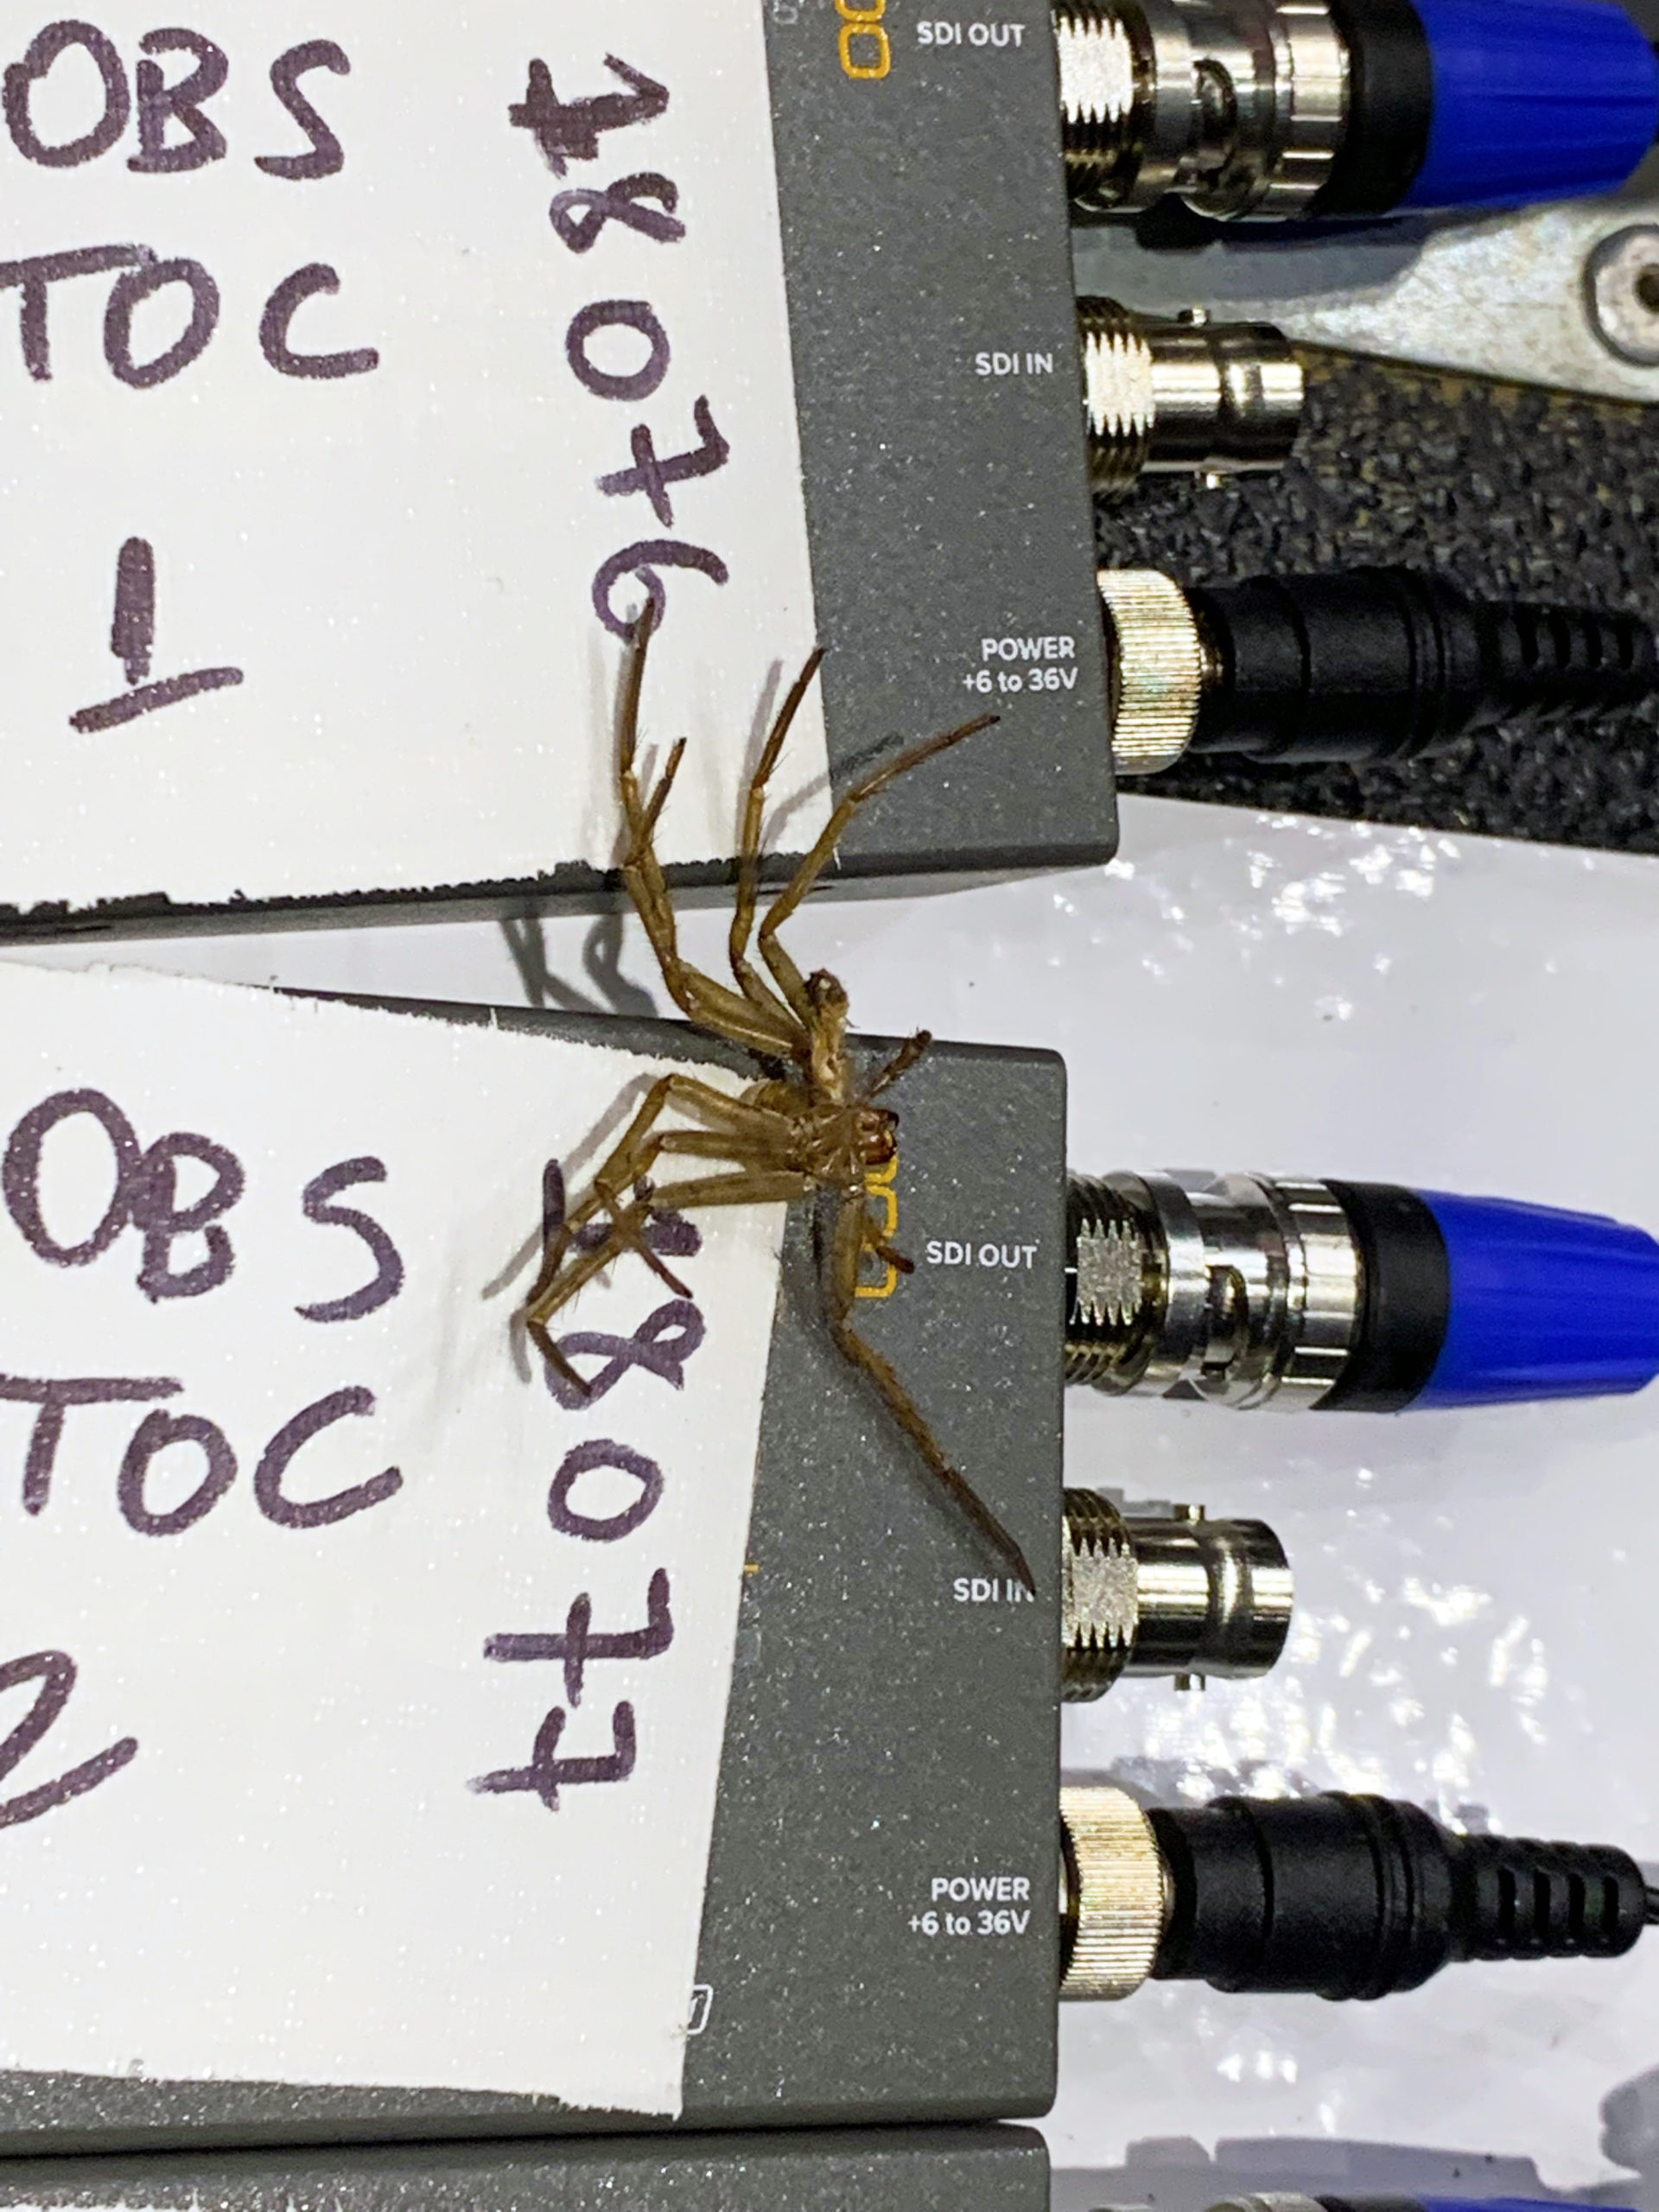 OBS
TOC
1
18076
SDI OUT
SDI IN
POWER
+6 to 36V
OBS
TOC
2
18077
SDI OUT
SDI IN
POWER
+6 to 36V